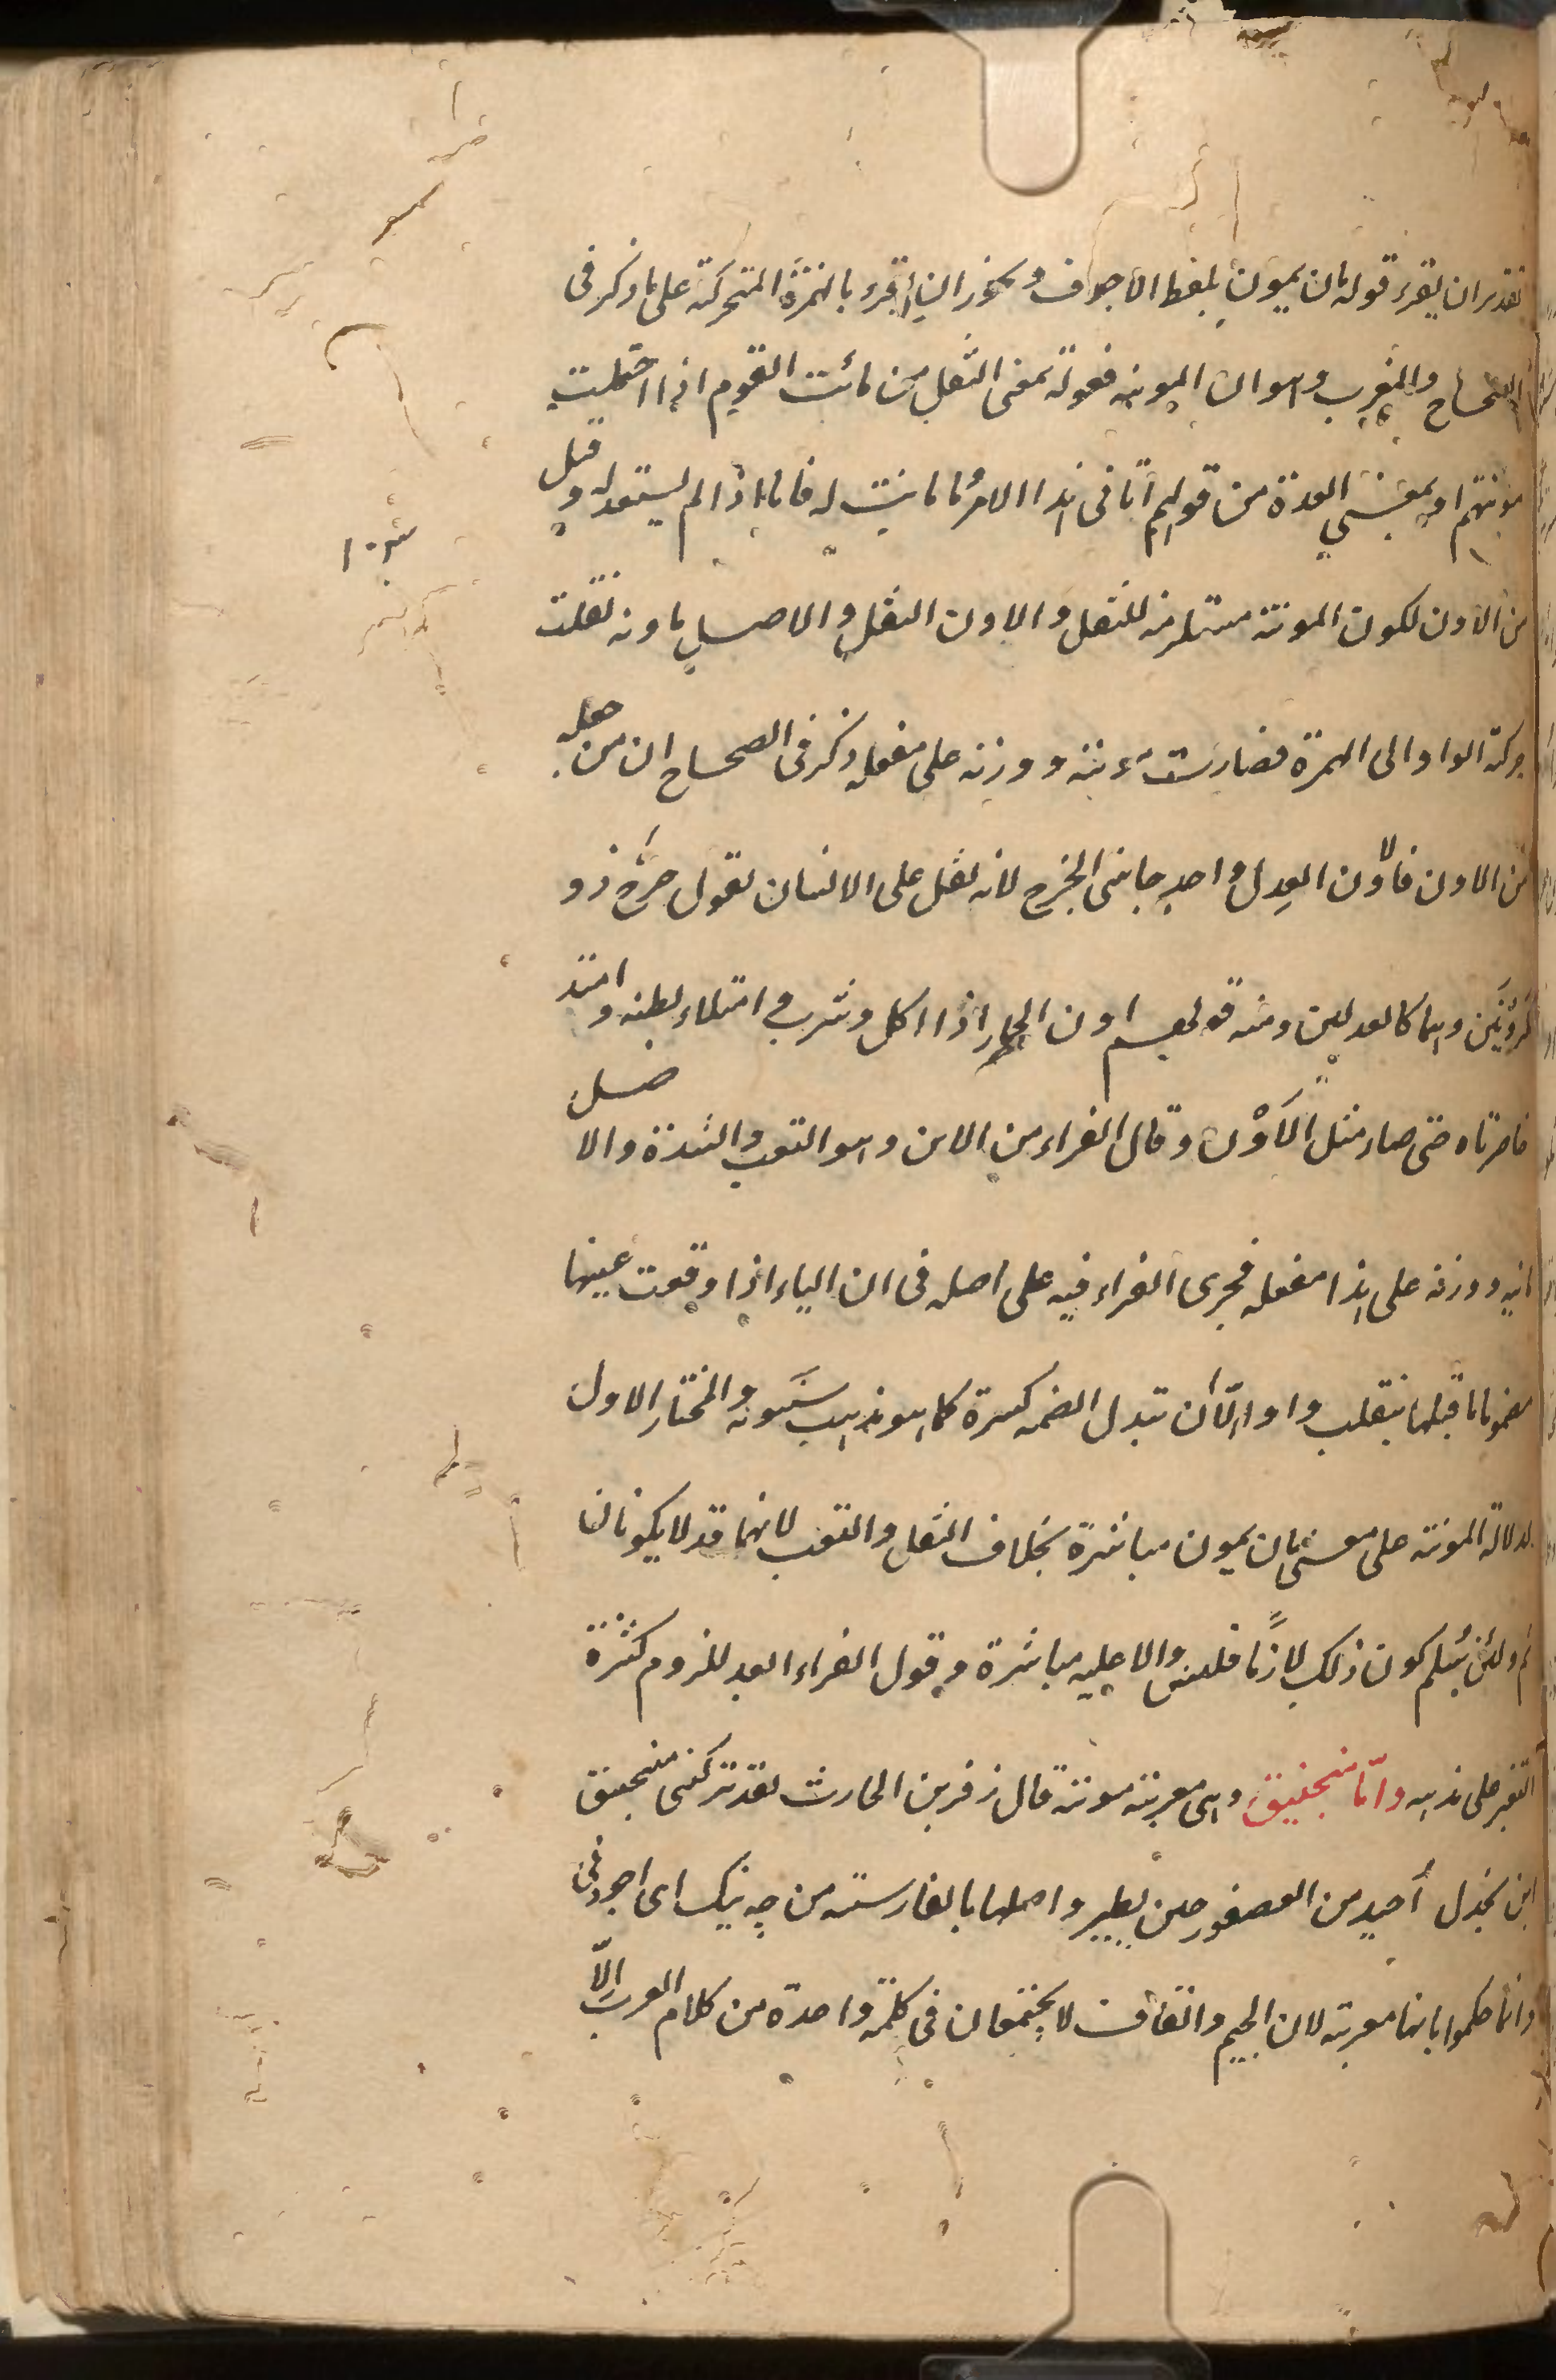 تقدير ان يقرء قوله مان يمون بلفظ الاجوف ويجوز ان يقرء بالهمزة المتحركة على ما ذكر فى
الصحاح والمغرب وهو ان المونه فعولة بمعنى الثقل من مائت القوم اذا احتملت
مونتهم او بمعنى العدة من قولهم اتانى هذا الامر وما مانت له مانا اذا لم يستعد له وقيل
من الاون لكون المونة مستلزمه للثقل والاون الثقل والاصل ماونه نقلت
حركة الواو الى الهمزة فصارت مئونة ووزنه على مفعله ذكر فى الصحاح ان من جعله
من الاون فالاون العدل واحد جانبى الخرج لانه ثقل على الانسان يقول خرج ذو
اونين وهما كالعدلين ومنه قولهم اون الحمار اذا اكل وشرب وامتلاء بطنه وامتد
خاصرتاه حتى صار مثل الاون وقال الفراء من الاين وهو التعب والشدة والاصل
مانيه ووزنه على هذا مفعله فجرى الفراء فيه على اصله فى ان الياء اذا وقعت عينها
مضموما ما قبلها ينقلب واوا لا ان تبدل الضمه كسرة كما هو مذهب سيبويه والمختار الاول
لدلالة المونة على معنى مان يمون مباشرة بخلاف الثقل والتعب لانهما قد لا يكونان
ثم ولئن سلم كون ذلك لازما فليس دالا عليه مباشرة وقول الفراء ابعد للزوم كثرة
التغير على مذهبه واما منجنيق وهى معربة مونثة قال زفر بن الحارث لقد تركتنى منجنيق
ابن بحدل احيد من العصفور حين يطير واصلها بالفارسية من جه نيك اى ما اجودنى
وانما حكموا بانها معربة لان الجيم والقاف لا يجتمعان فى كلمة واحدة من كلام العرب الا